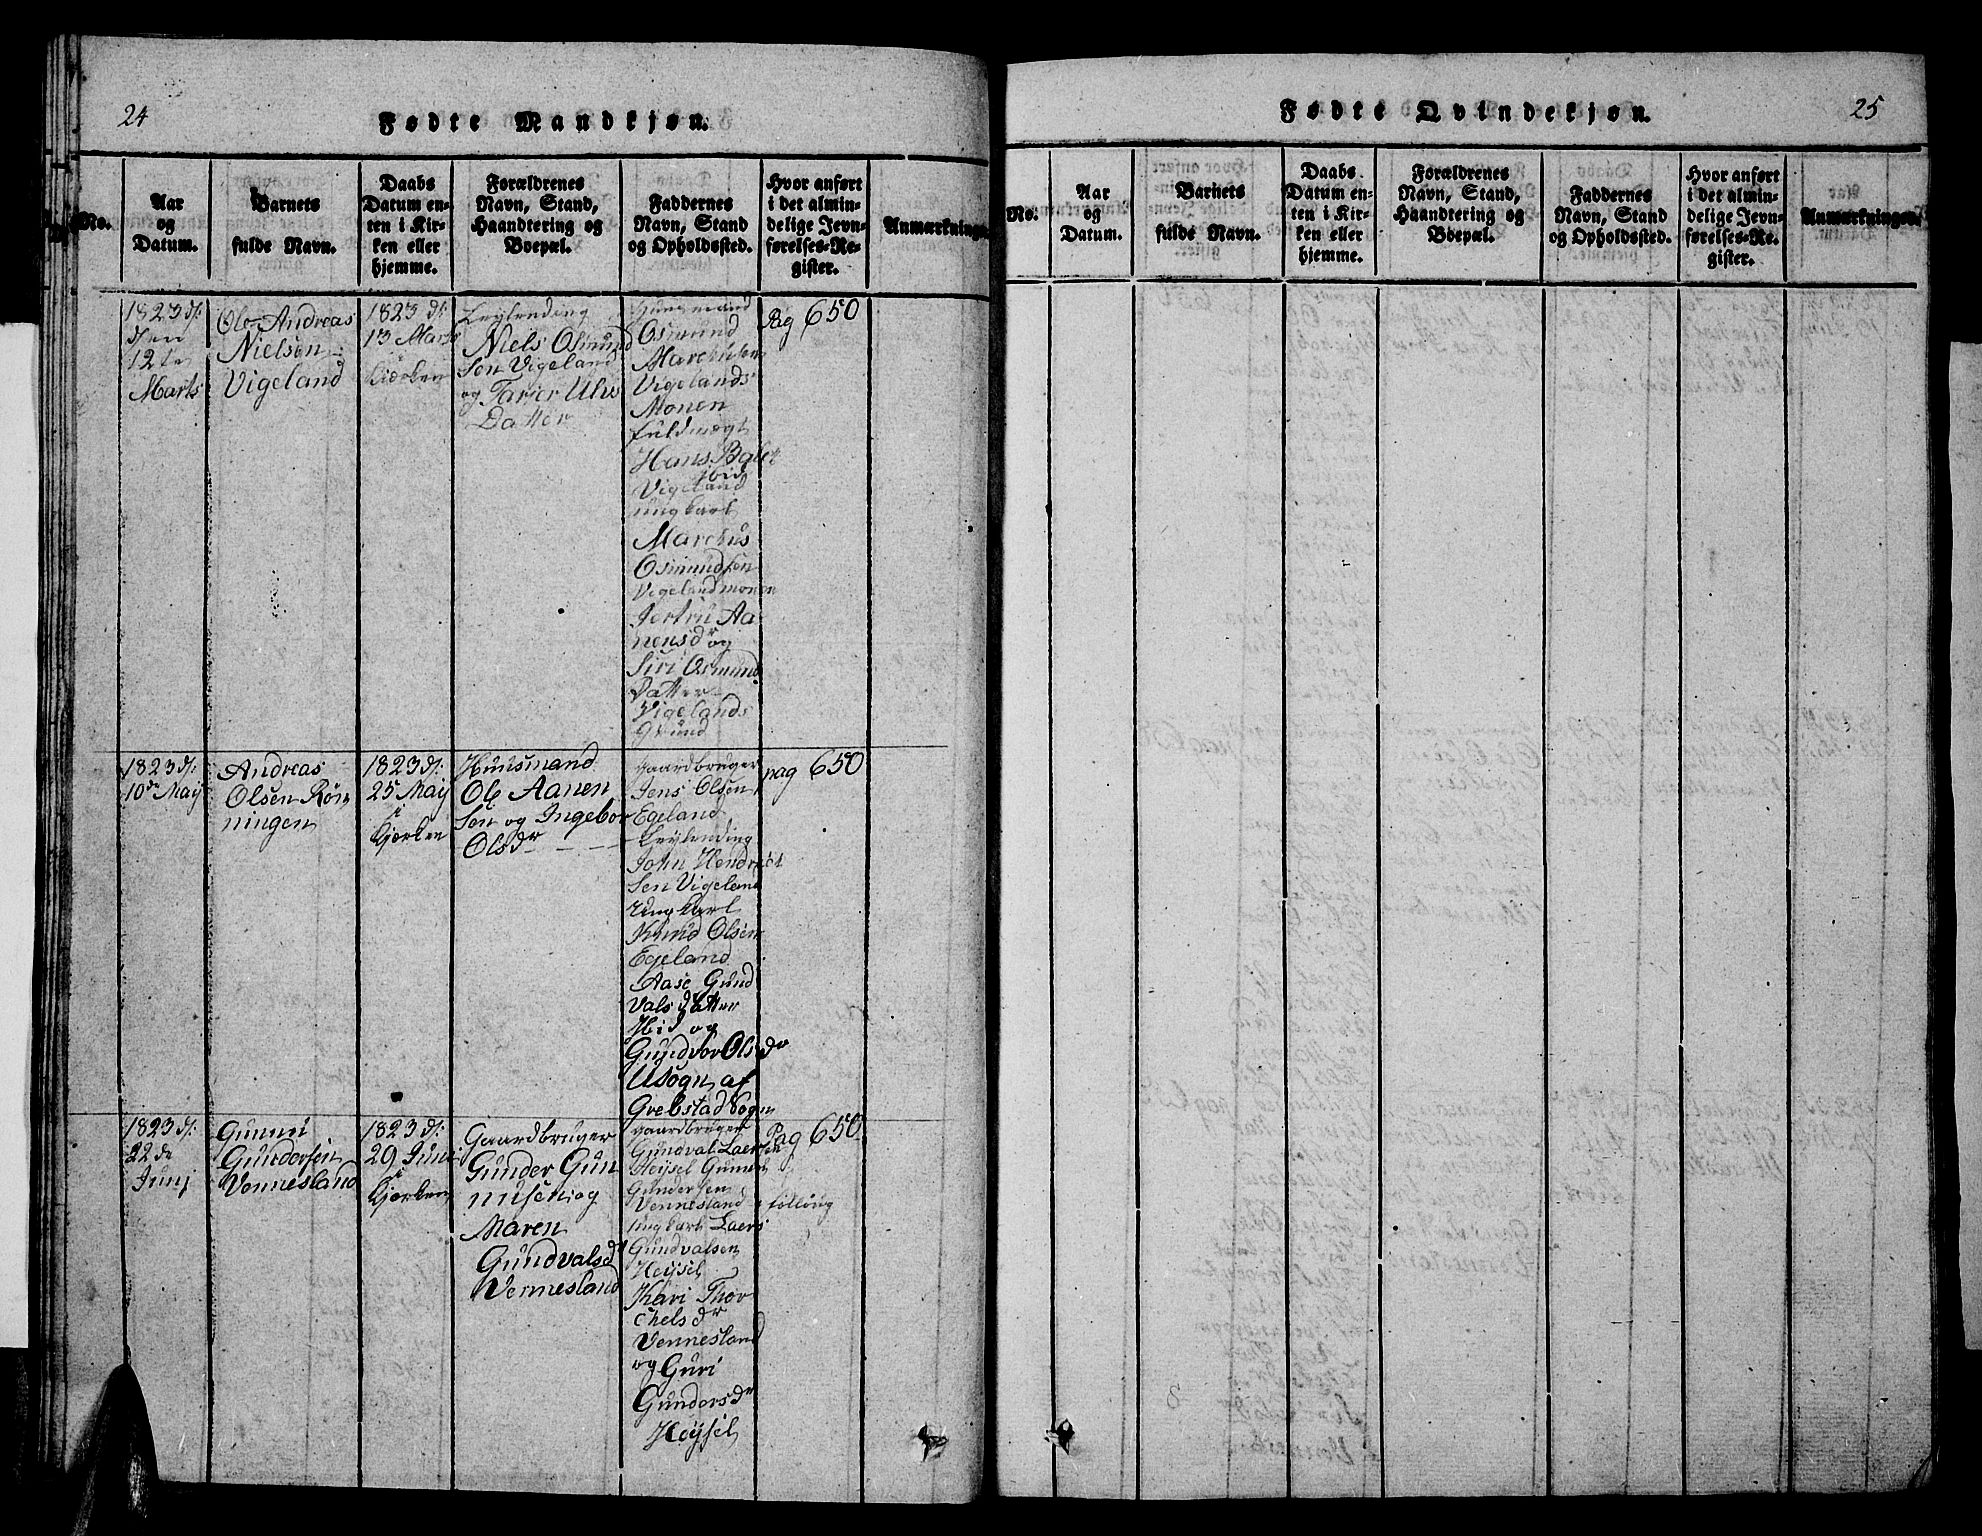 24
Fødte Mandkjøn.
No.
Aar
og
Datum.
Barnets
fulde Navn.
Daabs
Datum en-
ten i Kir-
ken eller
hjemme.
Forældrenes
Navn, Stand,
Haandtering og
Boepæl.
Faddernes
Navn, Stand
og Opholdssted.
Hvor anført
i det almin-
delige Jevn-
førelses-Re-
gister.
Anmærkninger.
1823 d:
den
12te
Marts
Ole Andreas
Nielsen
Vigeland
1823 d:
13 Marts
Leylending
Niels Osmund
Sen Vigeland
og Tarier Uhs
Datter
Huusmand
Osmund
Marcusen
Vigelands
Monen
fuldmegt
Hans
ibid
Vigeland
ungkarl
Marchus
Osmundsen
Vigelandmonen
Jertru Aa
nensdr og
Siri Osmund
Datter
Vigelands
Grund
Pag 650
1823 d:
10de May
Andreas
Olsen Røn
ningen
1823 d:
25 May
i
Kjørken
Huusmand
Ole Aanen
Sen og Ingebor
Olsdr
gaardbruger
Jens Olsen
Egeland
Leylending
John Hendrich
Sen Vigeland
Ungkarl
Knud Olsen
Egeland
Aase Gund
vals datter
Ibid og
Gundvor Olsdr
Usogn af
Grebstad Sogn
pag 650
1823 d:
22de
Junj
Gunnu
Gundersen
Vennesland
1823 d:
29 Juni
i
Kjørken
Gaardbruger
Gunder Gun
nusen og
Maren
Gundvalsdr
Vennesland
gaardbruger
Gundval Laersen
Heysel Gunnu
Gundersen
Vennesland
ungkarl Laers
Gundvalsen
Heysel
Kari Thor
chelsdr
Vennesland
og Guri
Gundersdr
Heysel
Pag 650
Fødte Qvindekjøn.
25
No.
Aar
og
Datum.
Barnets
fulde Navn.
Daabs
Datum en-
ten i Kir-
ken eller
hjemme.
Forældrenes
Navn, Stand,
Haandtering og
Boepæl.
Faddernes
Navn, Stand
og Opholdssted.
Hvor anført
i det almin-
delige Jevn-
førelses-Re-
gister.
Anmærkninger.